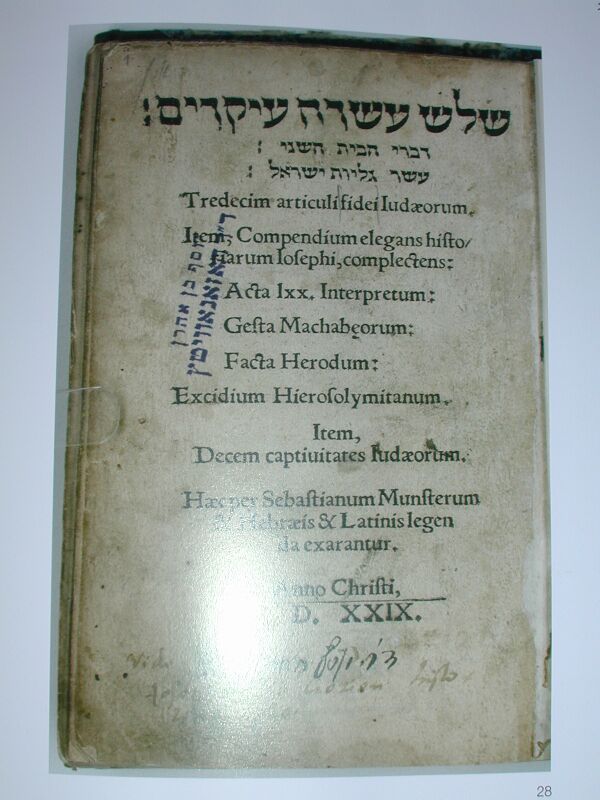 שלש עשרה עיקרים:
דברי הבית השני :
עשר גליות ישראל :
Tredecim articuli fidei Iudæorum.
Item, Compendium elegans histo/
riarum Iosephi, complectens:
Acta lxx. Interpretum:
Gesta Machabęorum:
Facta Herodum:
Excidium Hierosolymitanum.
Item,
Decem captiuitates Iudæorum.
Hæc per Sebastianum Munsterum
& Hebræis & Latinis legen
da exarantur.
Anno Christi,
D. XXIX.
יוסף בן אהרן
28